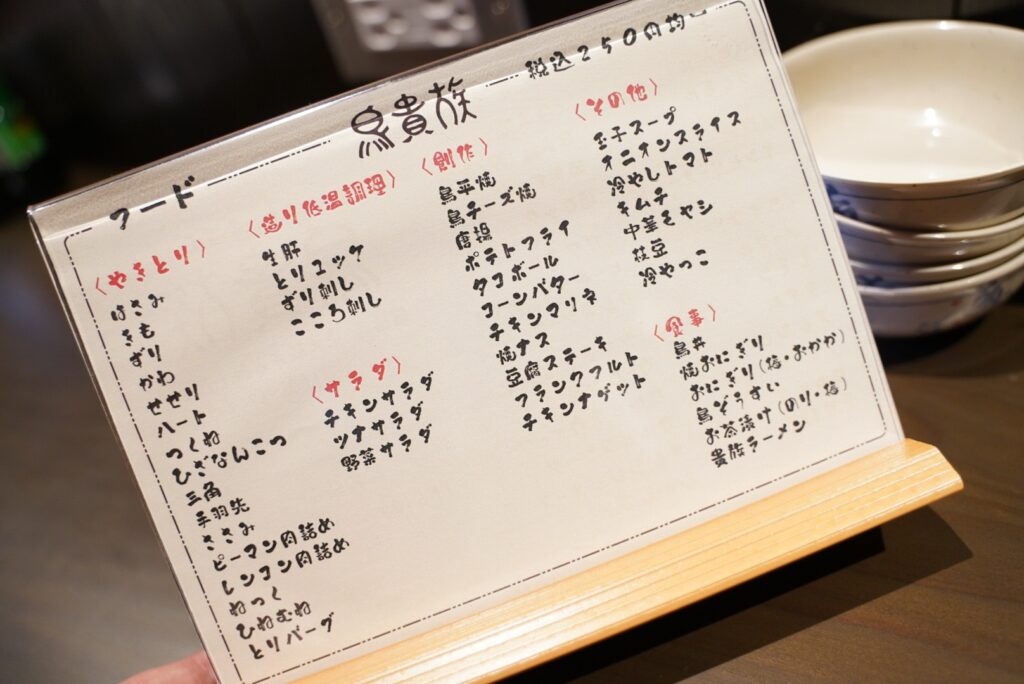 フード
鳥貴族
税込250円均一
〈やきとり〉
はさみ
きも
ずり
かわ
せせり
ハート
つくね
ひざなんこつ
三角
手羽先
ささみ
ピーマン肉詰め
レンコン肉詰め
ねっく
ひねむね
とりバーグ
〈造り低温調理〉
生肝
とりユッケ
ずり刺し
こころ刺し
〈サラダ〉
チキンサラダ
ツナサラダ
野菜サラダ
〈創作〉
鳥平焼
鳥チーズ焼
唐揚
ポテトフライ
タコボール
コーンバター
チキンマリネ
焼ナス
豆腐ステーキ
フランクフルト
チキンナゲット
〈その他〉
玉子スープ
オニオンスライス
冷やしトマト
キムチ
中華モヤシ
枝豆
冷やっこ
〈食事〉
鳥丼
焼おにぎり
おにぎり(梅・おかか)
鳥ぞうすい
お茶漬け(のり・梅)
貴族ラーメン